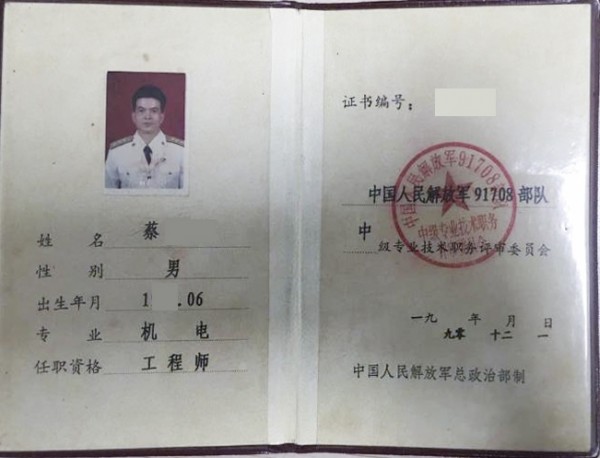 姓名 蔡
性别 男
出生年月 1 .06
专业 机电
任职资格 工程师
证书编号：
中国人民解放军91708部队
中级专业技术职务评审委员会
一九九零年十二月一日
中国人民解放军总政治部制
中国人民解放军91708部队
中级专业技术职务